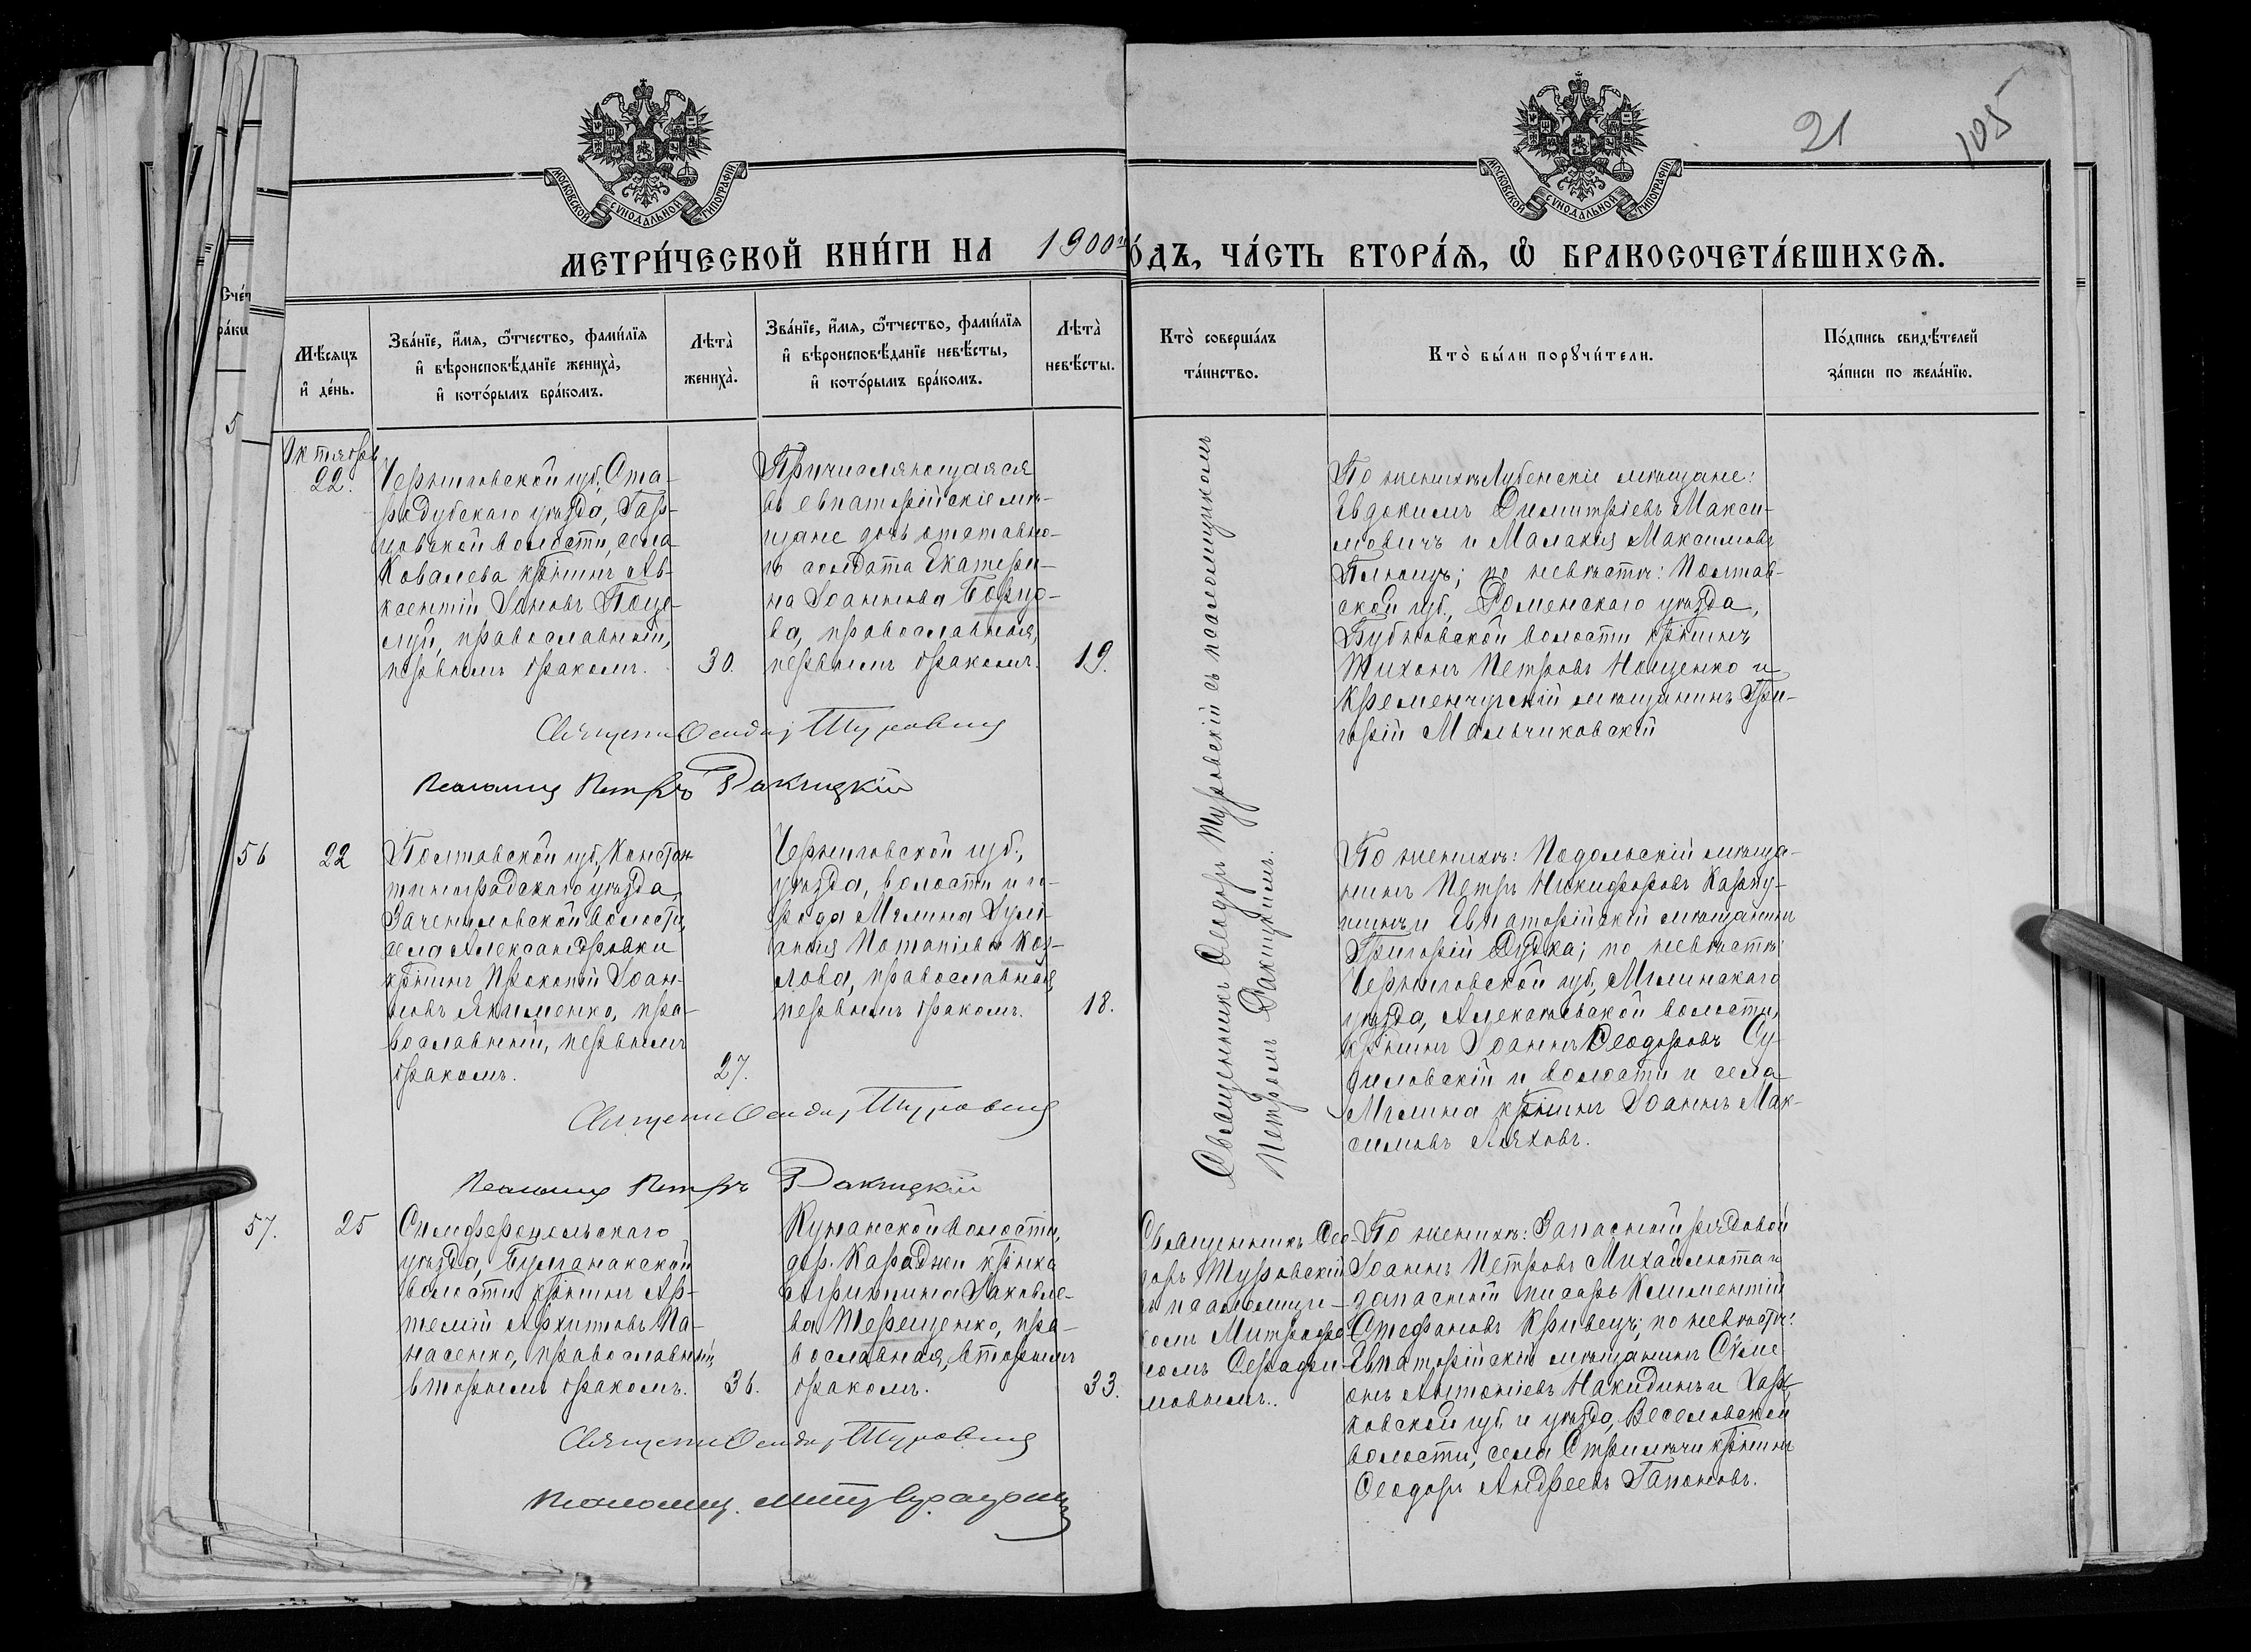 МОСКОВСКОЙ СУНОДАЛЬНОЙ ТИПОГРАФІИ.
МОСКОВСКОЙ СУНОДАЛЬНОЙ ТИПОГРАФІИ.
21
105
МЕТРИ́ЧЕСКОЙ КНИ́ГИ НА 1900
О́ДЪ, ЧА́СТЬ ВТОРА́Ѧ, Ѽ БРАКОСОЧЕТА́ВШИХСѦ.
Мѣ́сяцъ
и҆ де́нь.
Зва́нїе, и҆́мя, ѻ҆́тчество, фами́лїя
и҆ вѣроисповѣ́данїе жениха̀,
и҆ кото́рымъ бра́комъ.
Лѣта̀
жениха̀.
Зва́нїе, и҆́мя, ѻ҆́тчество, фами́лїя
и҆ вѣроисповѣ́данїе невѣ́сты,
и҆ кото́рымъ бра́комъ.
Лѣта̀
невѣ́сты.
Кто̀ соверша́лъ
та́инство.
Кто̀ бы́ли порꙋчи́тели.
По́дпись свидѣ́телей
за́писи по жела́нїю.
5
Октября
22.
Черниговской губ. Ста-
родубскаго уѣзда,
волости, села
Ковалева крѣнинъ Ав-
ксентій Іоановъ Поце-
луй, православный,
первымъ бракомъ.
30.
Причисляющаяся
въ евпаторійскіе мѣ-
щане дочь отставно-
го солдата Екатери-
на Іоаннова Борцо-
ва, православная,
первымъ бракомъ.
19.
Священникъ Ѳеодоръ Туровскій съ псаломщикомъ
Петромъ Ракицкимъ.
По женихѣ Лубенскіе мѣщане:
Евдокимъ Димитріевъ Макси-
мовичъ и Малахія Максимовъ
по невѣстѣ: Полтав-
ской губ., Роменскаго уѣзда,
волости крѣнинъ
Тихонъ Петровъ Нощенко и
Кременчугскій мѣщанинъ Гри-
горій Мальчиковскій
Священ Ѳеодоръ Туровскій
Псаломщ Петръ Ракицкій
56
22
Полтавской губ., Констан
тиноградскаго уѣзда,
Зачепиловской волости,
села Александровки
крѣнинъ Прокопій Іоан-
новъ Якименко, пра-
вославный, первымъ
бракомъ.
27.
Черниговской губ.,
уѣзда, волости и го-
рода Мглина Іулі-
анія Потапіева Коз-
лова, православная,
первымъ бракомъ.
18.
По женихѣ: Подольскій мѣща-
нинъ Петръ Никифоровъ Карпу-
шинъ и Евпаторійскій мѣщанинъ
Григорій по невѣстѣ:
Черниговской губ., Мглинскаго
уѣзда, волости,
крѣнинъ Іоаннъ Ѳеодоровъ Су-
диловскій и волости и села
Мглина крѣнинъ Іоаннъ Мак-
симовъ Ляховъ.
Священ Ѳеодоръ Туровскій
Псаломщ Петръ Ракицкій
57.
25
Симферопольскаго
уѣзда, Булганакской
волости крѣнинъ Ар-
темій Архиповъ Па-
насенко, православный,
вторымъ бракомъ.
36.
волости,
дер. Караджи крѣнка
Агриппина Іаковле-
ва Терещенко, пра-
вославная, вторымъ
бракомъ.
33.
Священникъ Ѳео-
доръ Туровскій
съ псаломщи-
комъ Митрофа
номъ Серафи-
мовымъ.
По женихѣ: Запасный рядовой
Іоаннъ Петровъ Михайлюта и
запасный писарь Климентій
Стефановъ Кривецъ; по невѣстѣ:
Евпаторійскій мѣщанинъ Сѵме
онъ Антоніевъ Накидинъ и Харь
ковской губ. и уѣзда, Веселовской
волости, села Стрилечи крѣнинъ
Ѳеодоръ Андреевъ Гапоновъ.
Священ Ѳеодоръ Туровскій
Псаломщ.